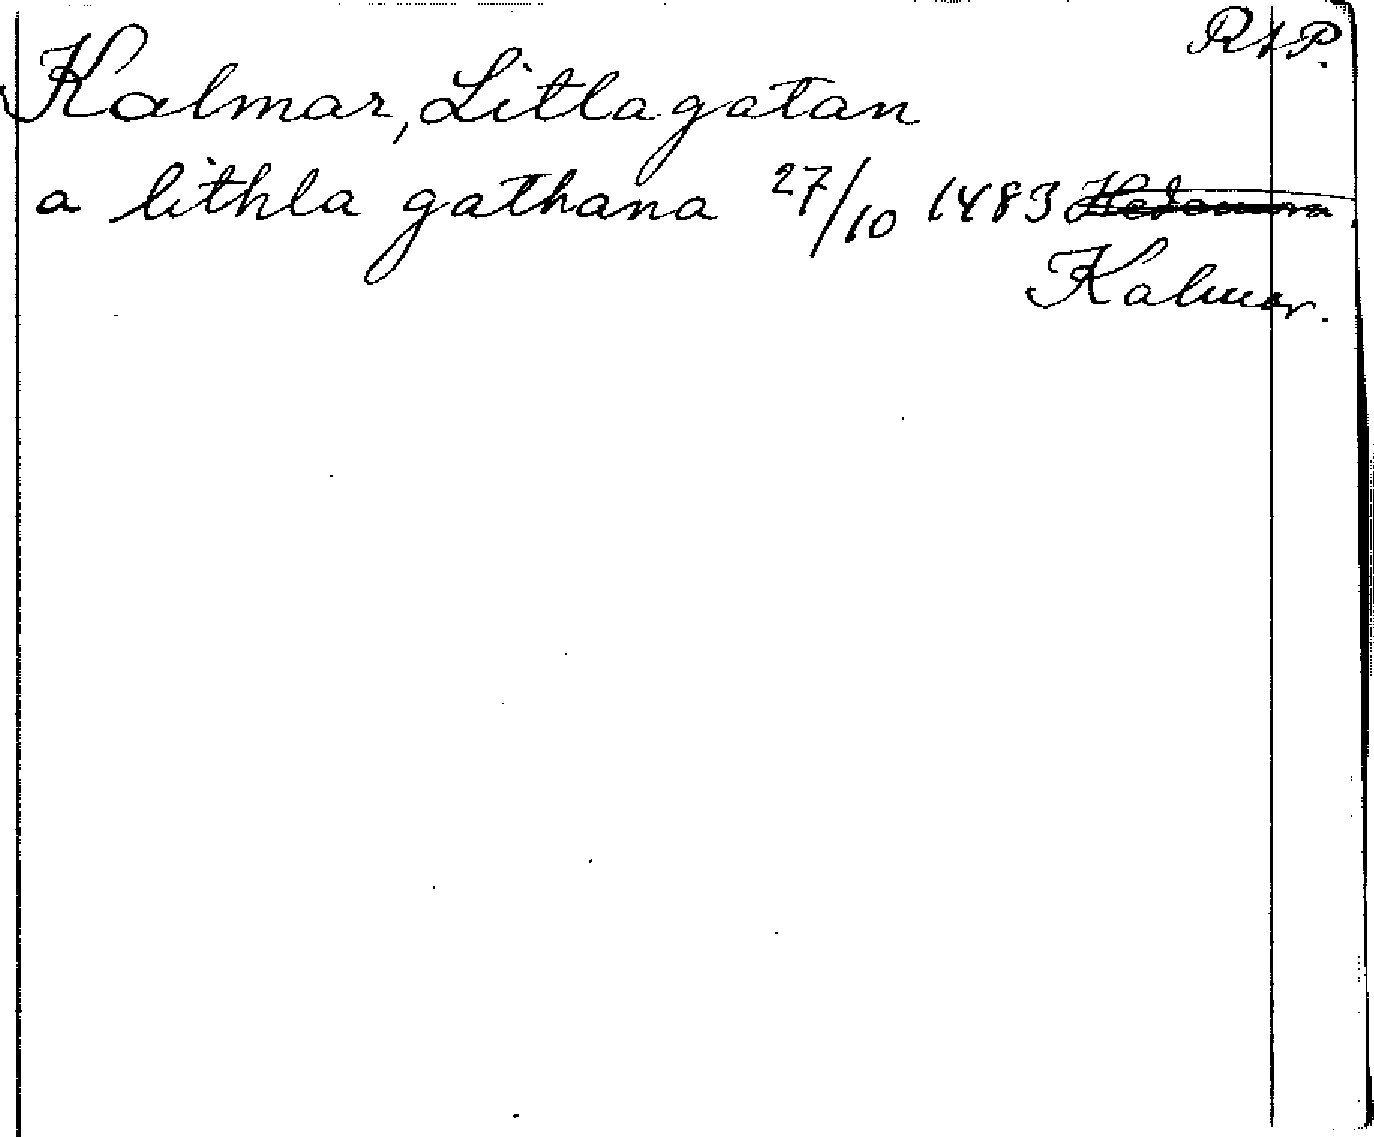 RAP.
Kalmar, Litlagatan
a lithla gathana 27/10 1483 Hedemora
Kalmar.